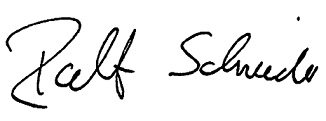 Ralf Schneider